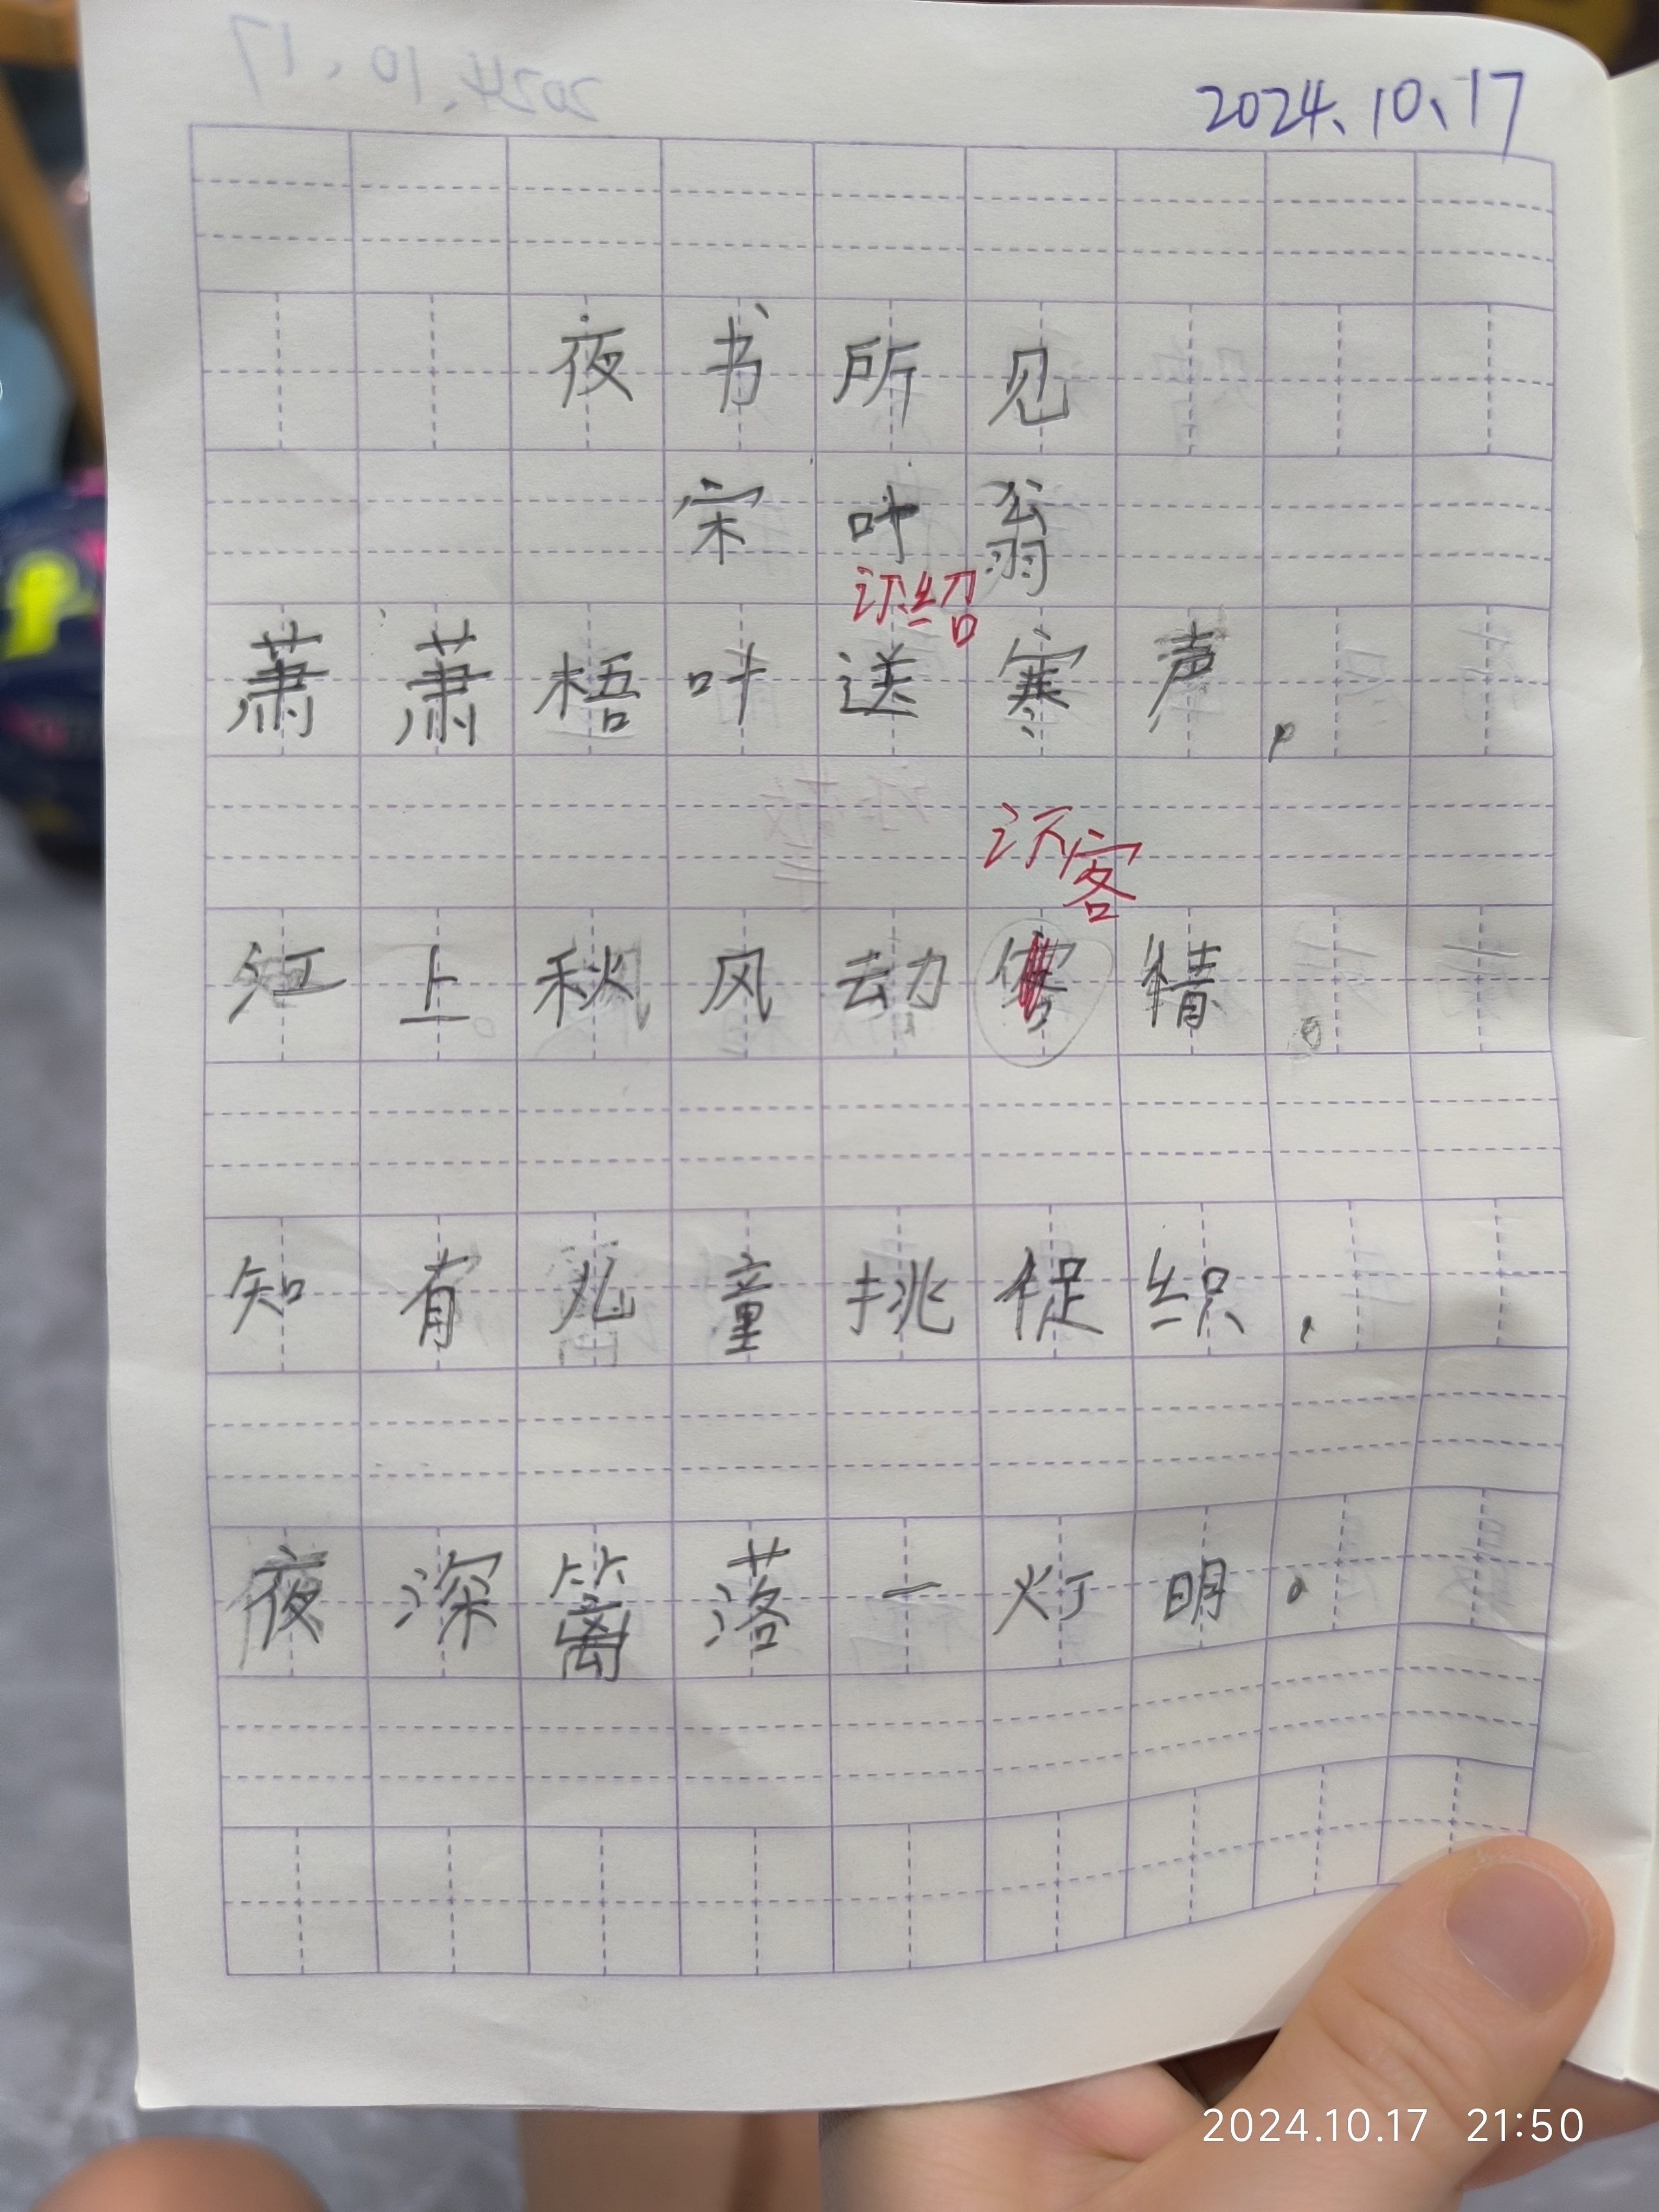 2024、10、17
夜书所见
宋 叶翁
诏绍
萧萧梧叶送寒声,
客
江上秋风动精。
知有儿童挑促织,
夜深篱落一灯明。
2024.10.17 21:50